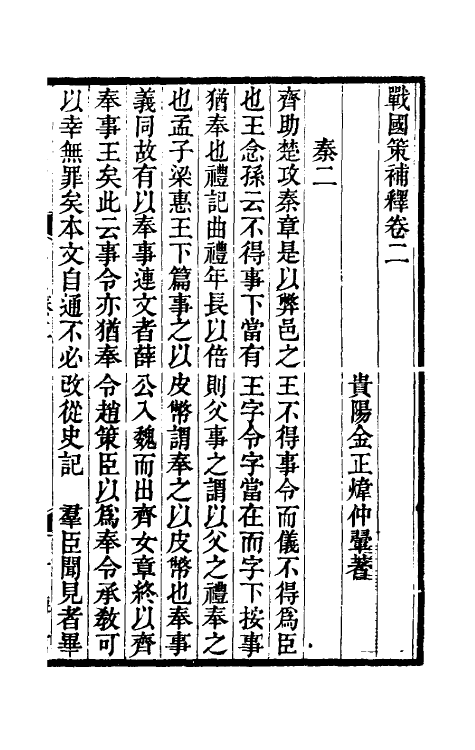 戰國策補釋卷二
貴陽金正煒仲翬著
秦二
齊助楚攻秦章是以弊邑之王不得事令而儀不得爲臣
也王念孫云不得事下當有王字令字當在而字下按事
猶奉也禮記曲禮年長以倍則父事之謂以父之禮奉之
也孟子梁惠王下篇事之以皮幣謂奉之以皮幣也奉事
義同故有以奉事連文者薛公入魏而出齊女章終以齊
奉事王矣此云事令亦猶奉令趙策臣以爲奉令承敎可
以幸無罪矣本文自通不必改從史記　羣臣聞見者畢